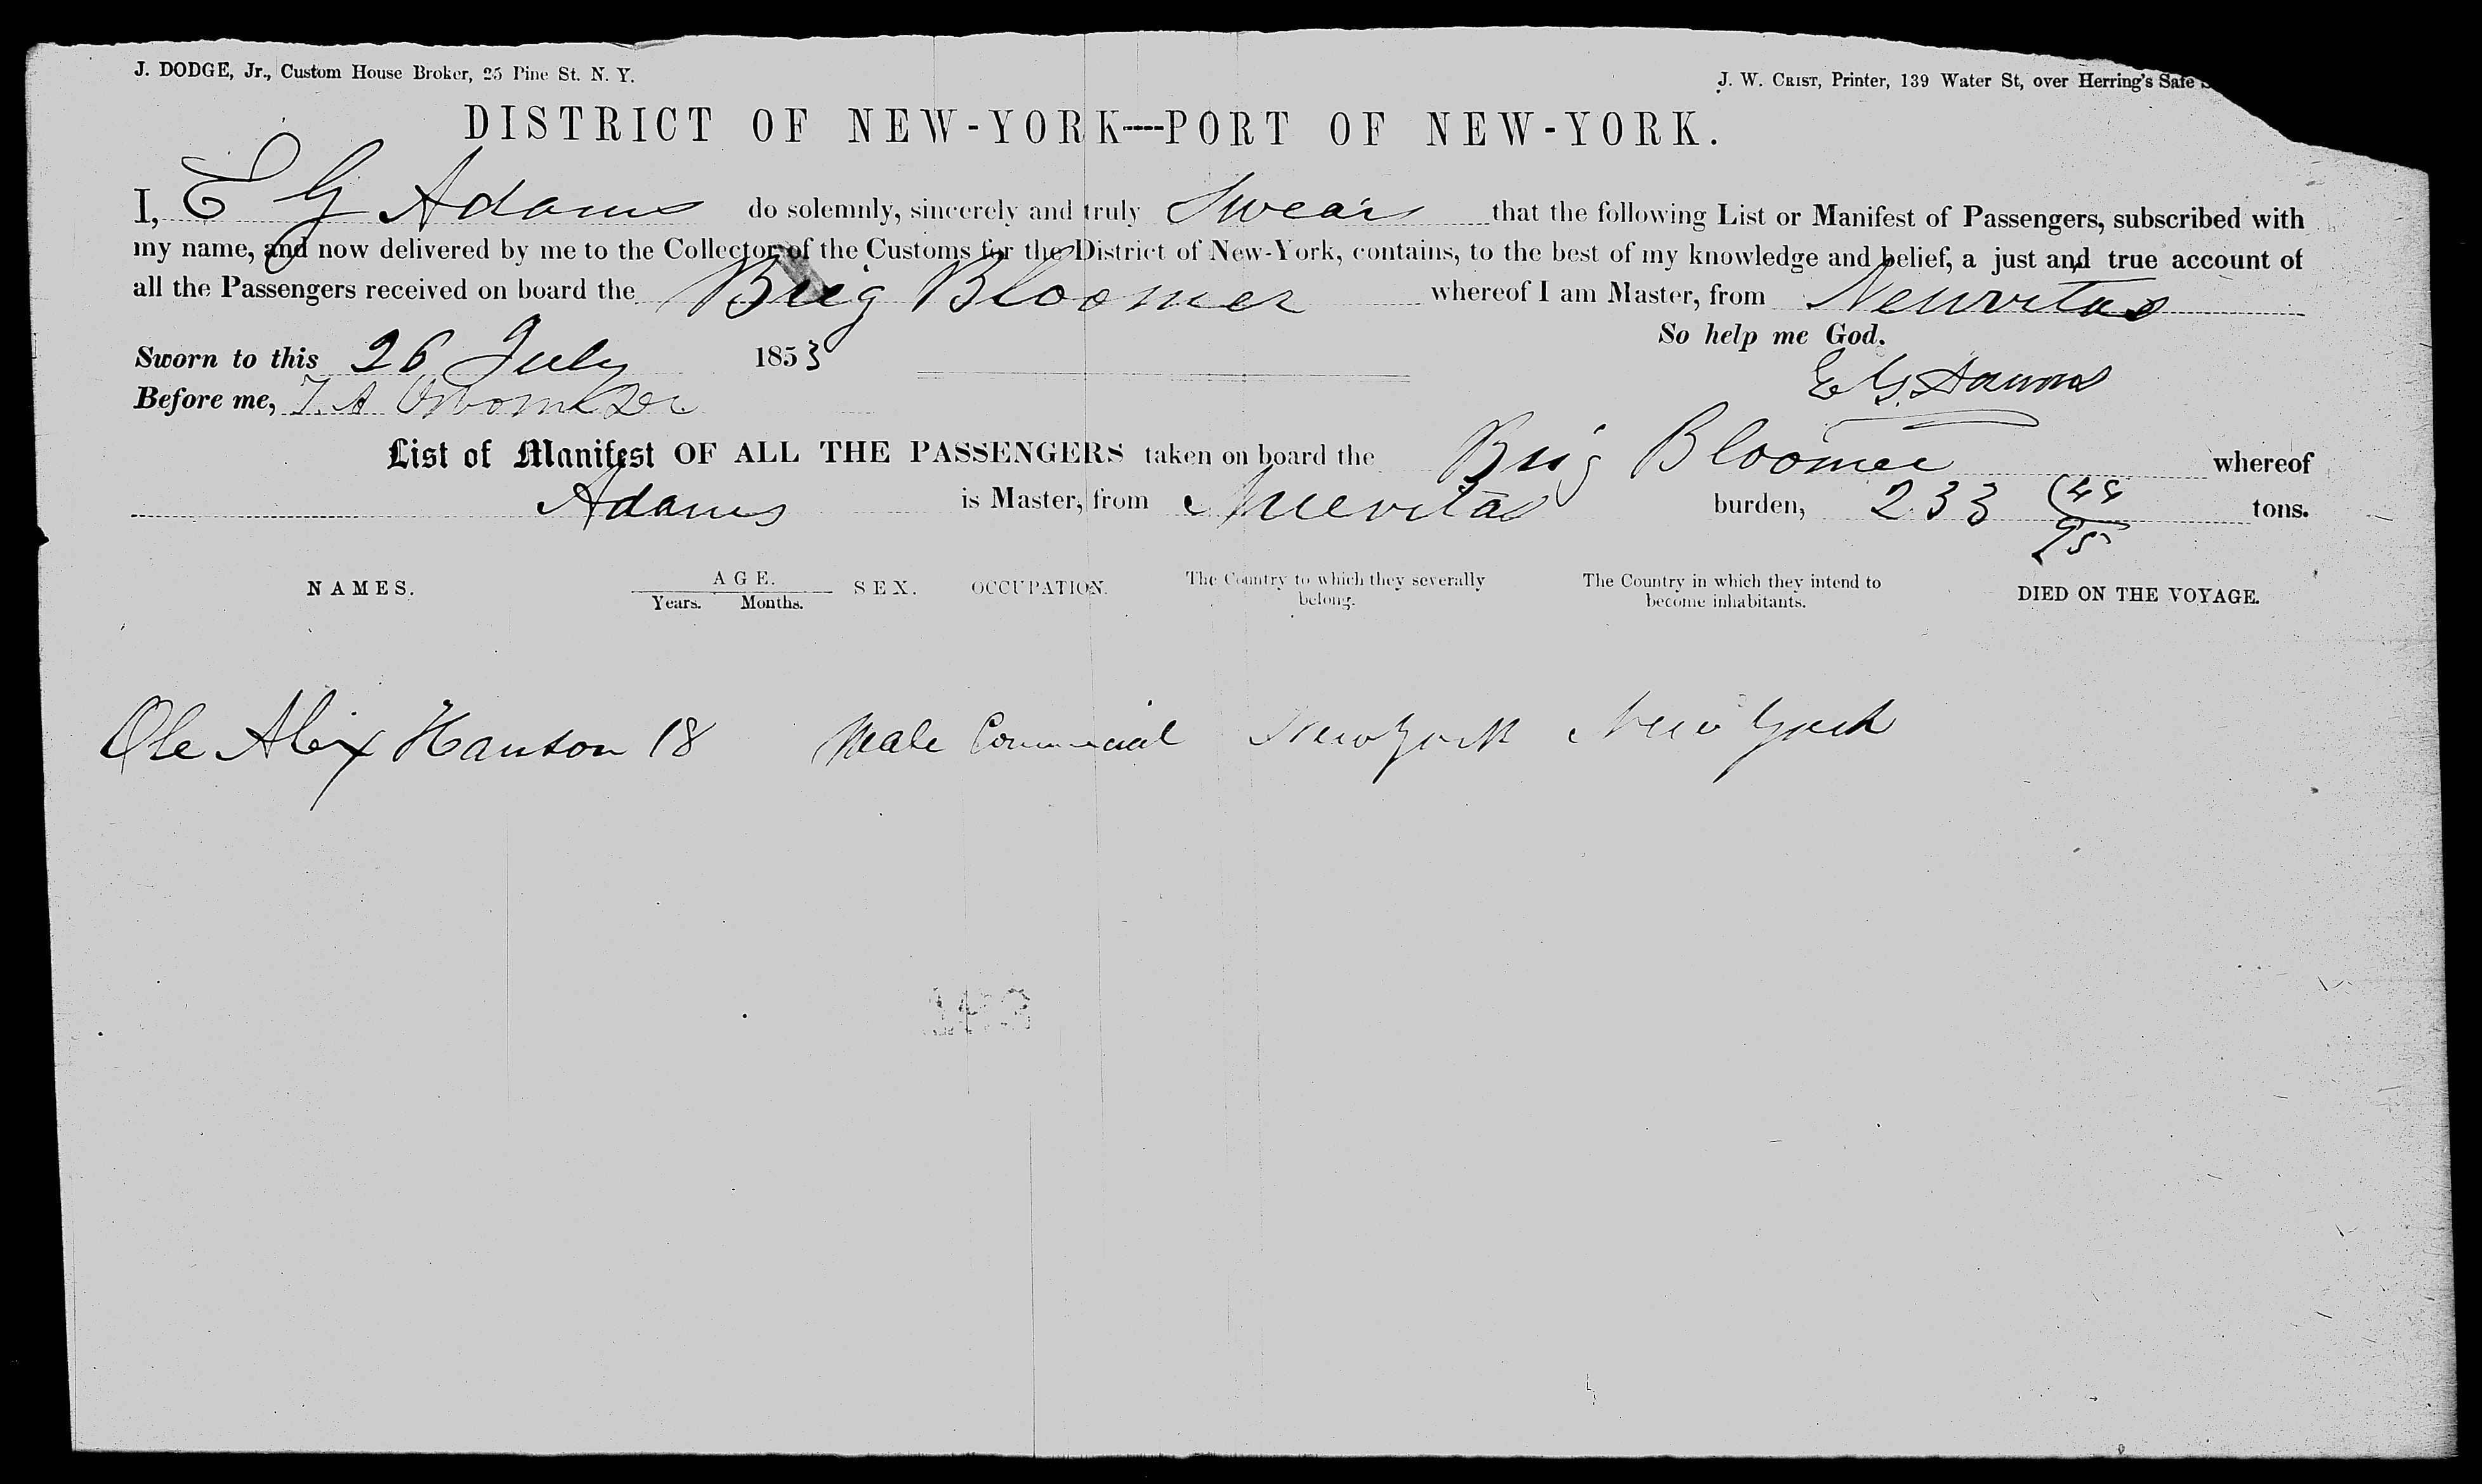 J. DODGE, Jr., Custom House Broker, 25 Pine St. N. Y.
J. W. CRIST, Printer, 139 Water St, over Herring's Safe
DISTRICT OF NEW-YORK—PORT OF NEW-YORK.
I, E G Adams do solemnly, sincerely and truly Swear that the following List or Manifest of Passengers, subscribed with
my name, and now delivered by me to the Collector of the Customs for the District of New-York, contains, to the best of my knowledge and belief, a just and true account of
all the Passengers received on board the Brig Bloomer whereof I am Master, from Neuvitas
So help me God.
Sworn to this 26 July 1853
E G. Adams
Before me,
List of Manifest OF ALL THE PASSENGERS taken on board the Brig Bloomer whereof
Adams is Master, from Nuevitas burden, 233 tons.
NAMES. AGE. SEX. OCCUPATION. The Country to which they severally The Country in which they intend to DIED ON THE VOYAGE.
Years. Months. belong. become inhabitants.
Ole Alex Hanson 18 Male Commercial New York New York